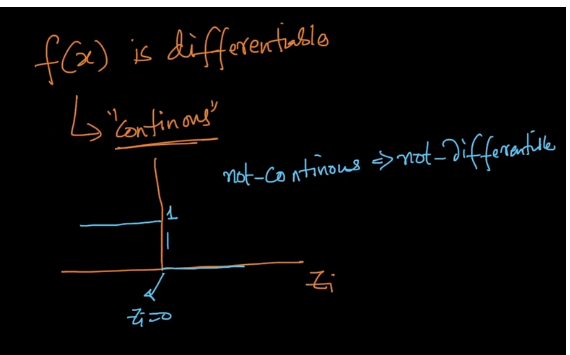 f(x) is differentiable
↳ "continous"
not-continous ⇒ not-differentible
1
Zi
Zi=0